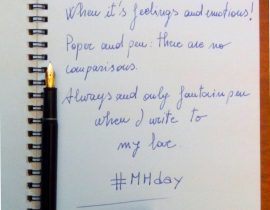 When it's feelings and emotions!
Paper and pen: there are no
comparisons.
Always and only fountain pen
when I write to
my love.
#MHday